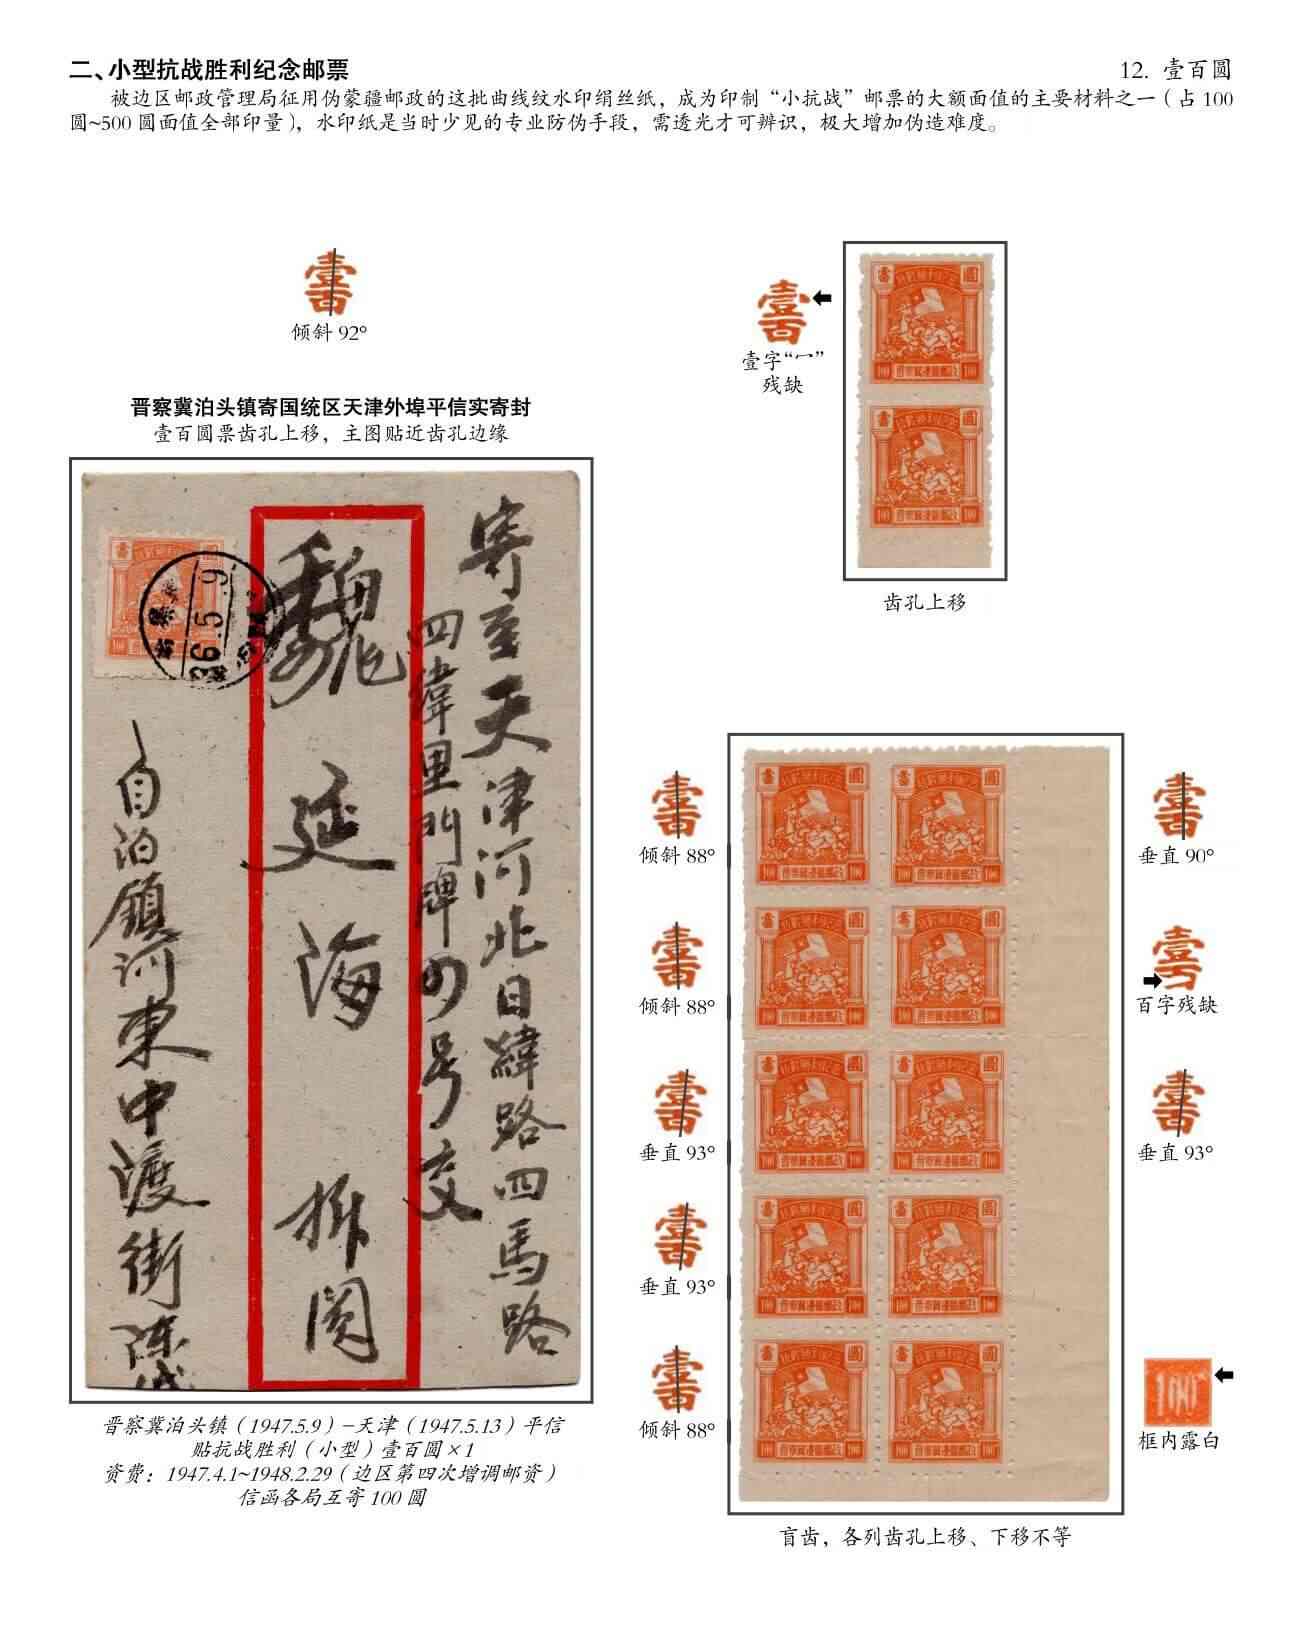 二、小型抗战胜利纪念邮票
12. 壹百圆
被边区邮政管理局征用伪蒙疆邮政的这批曲线纹水印绢丝纸，成为印制“小抗战”邮票的大额面值的主要材料之一（占 100
圆~500 圆面值全部印量），水印纸是当时少见的专业防伪手段，需透光才可辨识，极大增加伪造难度。
壹百
倾斜 92°
晋察冀泊头镇寄国统区天津外埠平信实寄封
壹百圆票齿孔上移，主图贴近齿孔边缘
寄至天津河北日緯路四馬路
四緯里門牌四号交
魏延海 拆閱
自泊鎮河東中渡街陈
36.5.9
晋察冀泊头镇（1947.5.9）–天津（1947.5.13）平信
贴抗战胜利（小型）壹百圆×1
资费：1947.4.1~1948.2.29（边区第四次增调邮资）
信函各局互寄 100 圆
壹百
壹字“冖”
残缺
圆
100
100
圆
100
100
齿孔上移
倾斜 88°
倾斜 88°
垂直 93°
垂直 93°
倾斜 88°
垂直 90°
百字残缺
垂直 93°
100
框内露白
盲齿，各列齿孔上移、下移不等